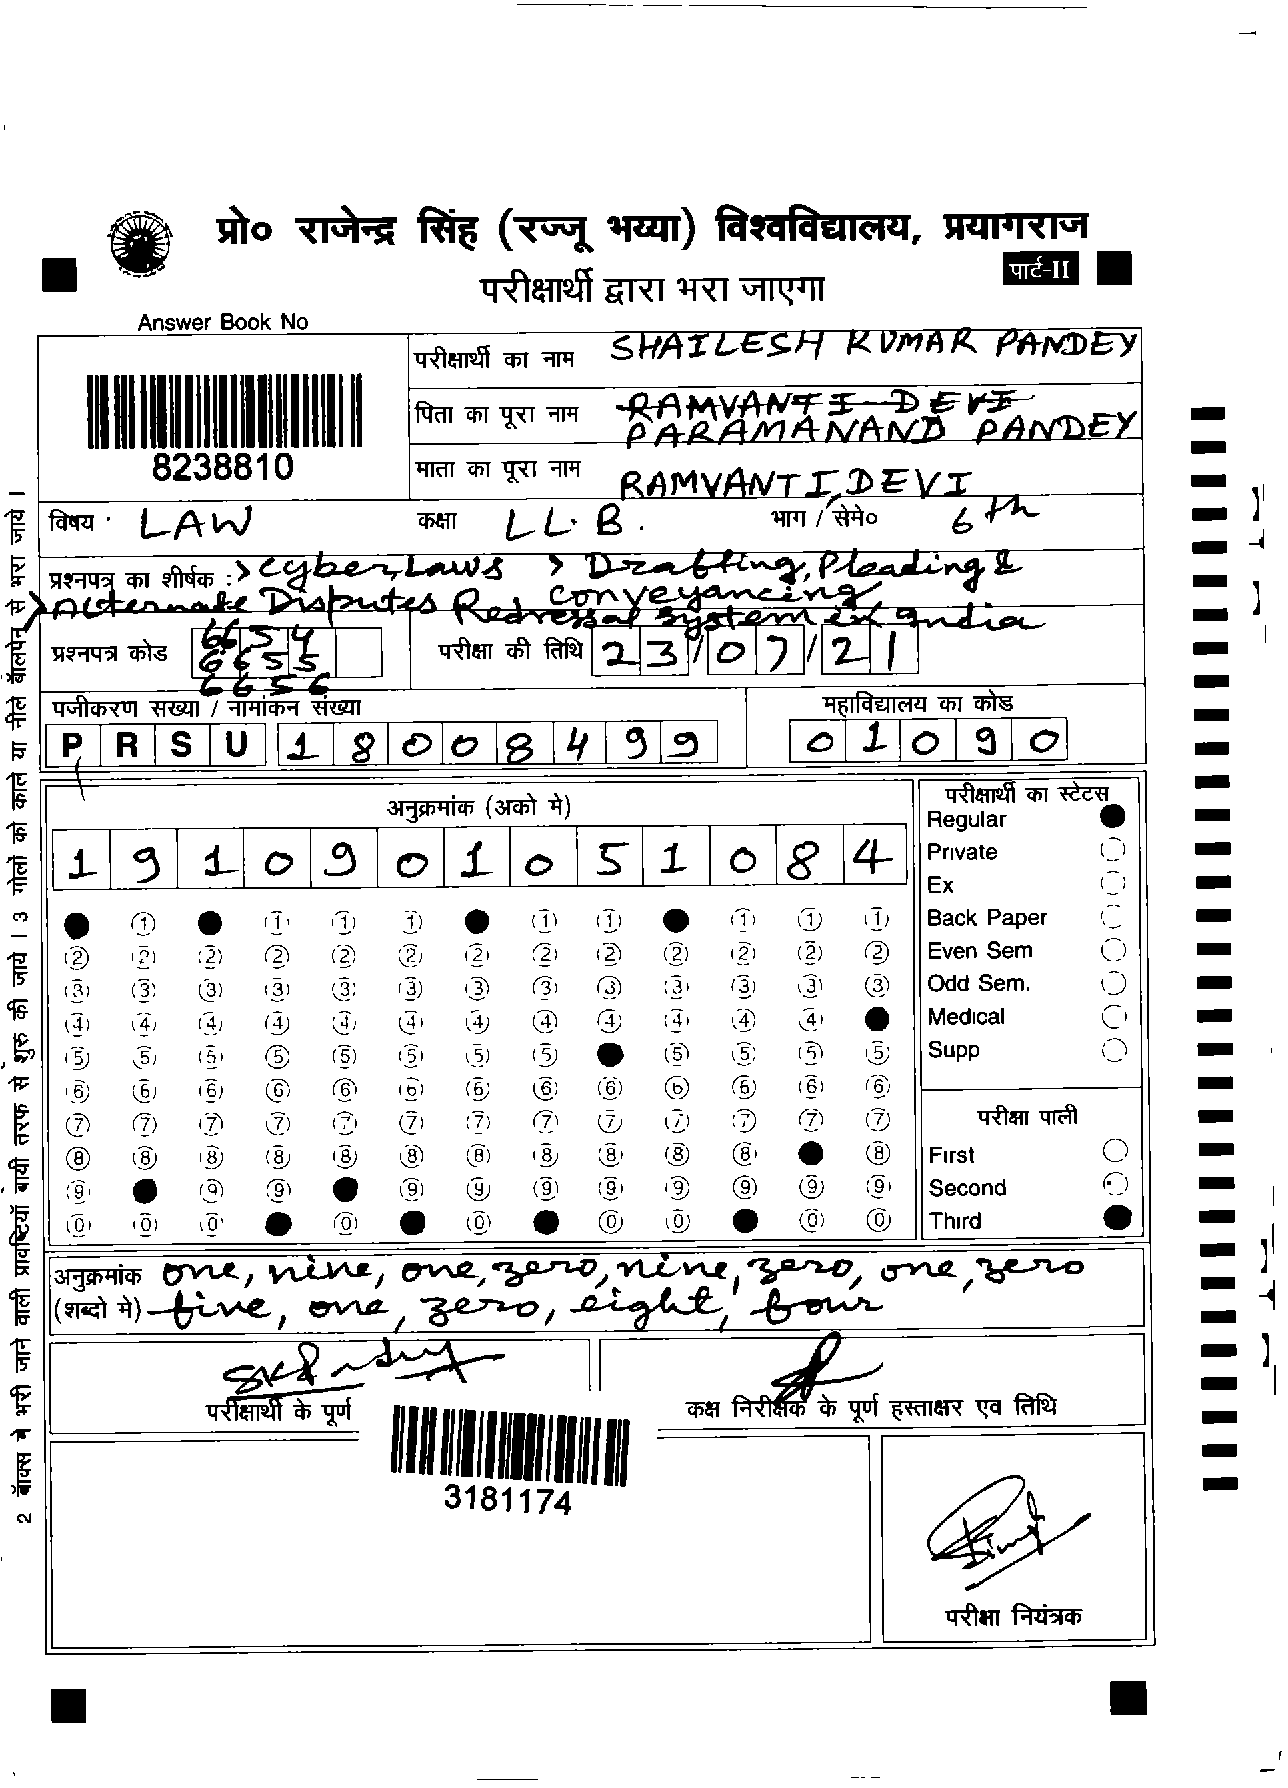 प्रो० राजेन्द्र सिंह (रज्जू भय्या) विश्वविद्यालय, प्रयागराज
पार्ट-II
परीक्षार्थी द्वारा भरा जाएगा
Answer Book No
8238810
परीक्षार्थी का नाम SHAILESH KUMAR PANDEY
पिता का पूरा नाम RAMVANTI DEVI
PARAMANAND PANDEY
माता का पूरा नाम RAMVANTI DEVI
विषय LAW कक्षा LL.B. भाग / सेमे० 6th
प्रश्नपत्र का शीर्षक :> Cyber Laws > Drafting, Pleading &
Conveyancing
> Alternate Disputes Redressal System in India
प्रश्नपत्र कोड 6654
6655
6656
परीक्षा की तिथि 23/07/21
पजीकरण सख्या / नामांकन संख्या
PRSU18008499
महाविद्यालय का कोड
01090
अनुक्रमांक (अको मे)
1910901051084
1 1 1 1 1 1 1 1 1
2 2 2 2 2 2 2 2 2 2 2 2 2
3 3 3 3 3 3 3 3 3 3 3 3 3
4 4 4 4 4 4 4 4 4 4 4 4
5 5 5 5 5 5 5 5 5 5 5 5
6 6 6 6 6 6 6 6 6 6 6 6 6
7 7 7 7 7 7 7 7 7 7 7 7 7
8 8 8 8 8 8 8 8 8 8 8 8
9 9 9 9 9 9 9 9 9 9 9
0 0 0 0 0 0 0 0 0
परीक्षार्थी का स्टेटस
Regular
Private
Ex
Back Paper
Even Sem
Odd Sem.
Medical
Supp
परीक्षा पाली
First
Second
Third
अनुक्रमांक one, nine, one, zero, nine, zero, one, zero
(शब्दो मे) five, one, zero, eight, four
परीक्षार्थी के पूर्ण
कक्ष निरीक्षक के पूर्ण हस्ताक्षर एव तिथि
3181174
परीक्षा नियंत्रक
2 बॉक्स मे भरी जाने वाली प्रविष्टियॉ बायी तरफ से शुरु की जाये । 3 गोलो को काले या नीले बॉलपेन से भरा जाये ।